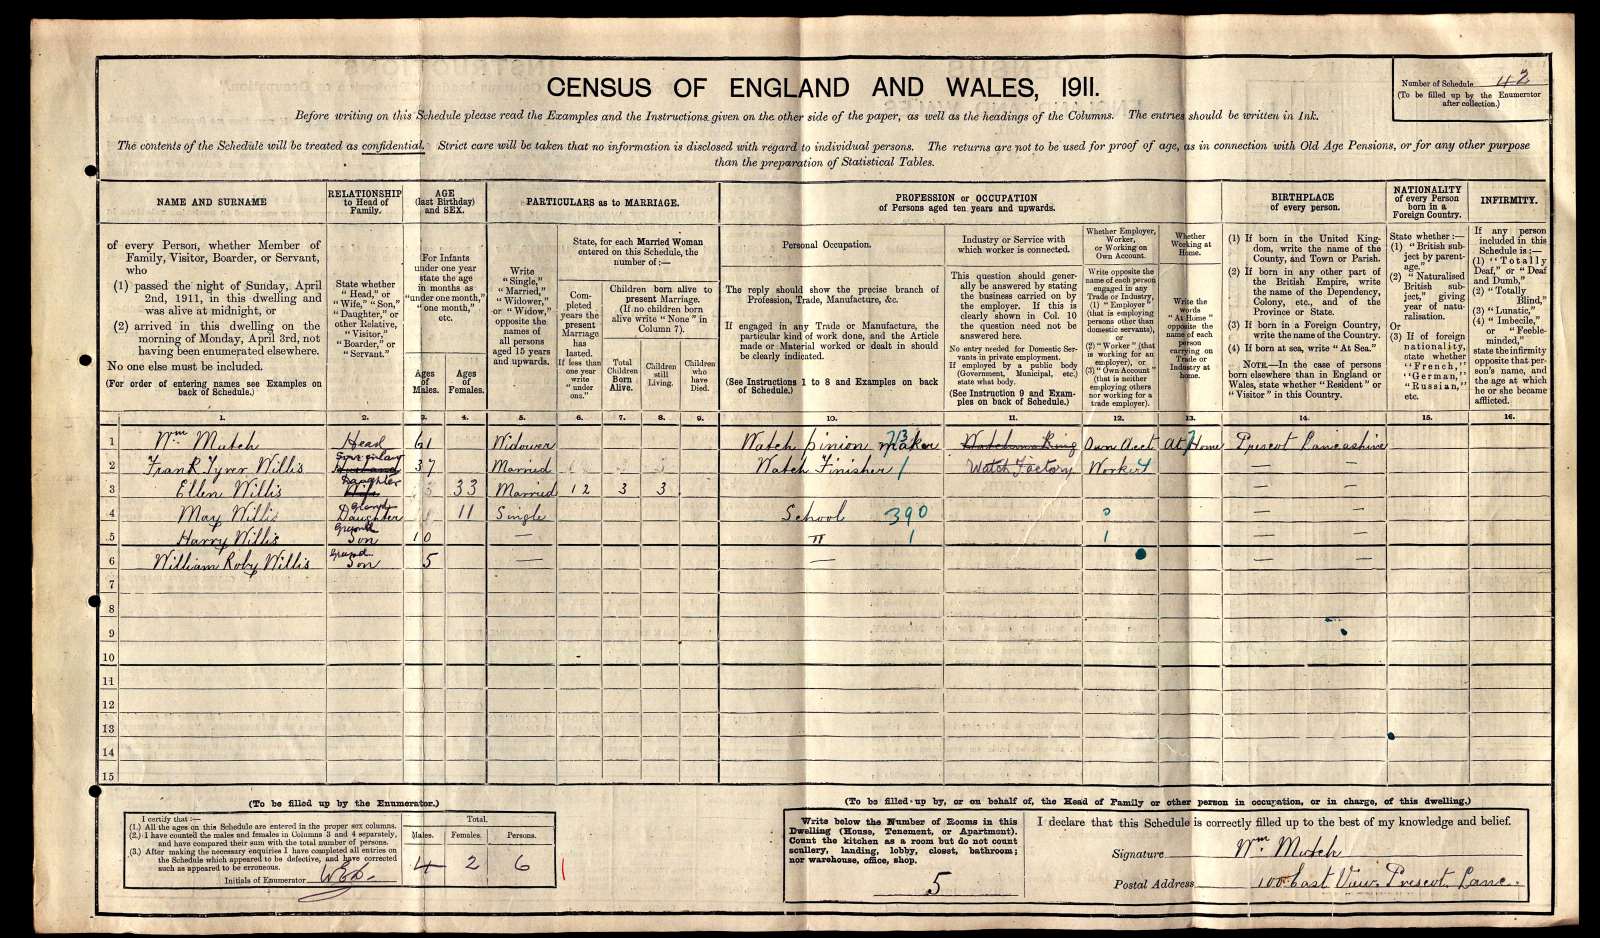 CENSUS OF ENGLAND AND WALES, 1911.
Number of Schedule 42
(To be filled up by the Enumerator
after collection.)
Before writing on this Schedule please read the Examples and the Instructions given on the other side of the paper, as well as the headings of the Columns. The entries should be written in Ink.
The contents of the Schedule will be treated as confidential. Strict care will be taken that no information is disclosed with regard to individual persons. The returns are not to be used for proof of age, as in connection with Old Age Pensions, or for any other purpose
than the preparation of Statistical Tables.
NAME AND SURNAME
of every Person, whether Member of
Family, Visitor, Boarder, or Servant,
who
(1) passed the night of Sunday, April
2nd, 1911, in this dwelling and
was alive at midnight, or
(2) arrived in this dwelling on the
morning of Monday, April 3rd, not
having been enumerated elsewhere.
No one else must be included.
(For order of entering names see Examples on
back of Schedule.)
RELATIONSHIP
to Head of
Family.
State whether
"Head," or
"Wife," "Son,"
"Daughter," or
other Relative,
"Visitor,"
"Boarder," or
"Servant."
AGE
(last Birthday)
and SEX.
For Infants
under one year
state the age
in months as
"under one month,"
"one month,"
etc.
Ages
of
Males.
Ages
of
Females.
PARTICULARS as to MARRIAGE.
Write
"Single,"
"Married,"
"Widower,"
or "Widow,"
opposite the
names of
all persons
aged 15 years
and upwards.
State, for each Married Woman
entered on this Schedule, the
number of:—
Com-
pleted
years the
present
Marriage
has
lasted.
If less than
one year
write
"under
one."
Children born alive to
present Marriage.
(If no children born
alive write "None" in
Column 7).
Total
Children
Born
Alive.
Children
still
Living.
Children
who
have
Died.
PROFESSION or OCCUPATION
of Persons aged ten years and upwards.
Personal Occupation.
The reply should show the precise branch of
Profession, Trade, Manufacture, &c.
If engaged in any Trade or Manufacture, the
particular kind of work done, and the Article
made or Material worked or dealt in should
be clearly indicated.
(See Instructions 1 to 8 and Examples on back
of Schedule.)
Industry or Service with
which worker is connected.
This question should gener-
ally be answered by stating
the business carried on by
the employer. If this is
clearly shown in Col. 10
the question need not be
answered here.
No entry needed for Domestic Ser-
vants in private employment.
If employed by a public body
(Government, Municipal, etc.)
state what body.
(See Instruction 9 and Exam-
ples on back of Schedule.)
Whether Employer,
Worker,
or Working on
Own Account.
Write opposite the
name of each person
engaged in any
Trade or Industry,
(1) "Employer"
(that is employing
persons other than
domestic servants),
or
(2) "Worker" (that
is working for an
employer), or
(3) "Own Account"
(that is neither
employing others
nor working for a
trade employer).
Whether
Working at
Home.
Write the
words
"At Home"
opposite the
name of each
person
carrying on
Trade or
Industry at
home.
BIRTHPLACE
of every person.
(1) If born in the United King-
dom, write the name of the
County, and Town or Parish.
(2) If born in any other part of
the British Empire, write
the name of the Dependency,
Colony, etc., and of the
Province or State.
(3) If born in a Foreign Country,
write the name of the Country.
(4) If born at sea, write "At Sea."
NOTE.—In the case of persons
born elsewhere than in England or
Wales, state whether "Resident" or
"Visitor" in this Country.
NATIONALITY
of every Person
born in a
Foreign Country.
State whether:—
(1) "British sub-
ject by parent-
age."
(2) "Naturalised
British sub-
ject," giving
year of natu-
ralisation.
Or
(3) If of foreign
nationality,
state whether
"French,"
"German,"
"Russian,"
etc.
INFIRMITY.
If any person
included in this
Schedule is:—
(1) "Totally
Deaf," or "Deaf
and Dumb,"
(2) "Totally
Blind,"
(3) "Lunatic,"
(4) "Imbecile,"
or "Feeble-
minded,"
state the infirmity
opposite that per-
son's name, and
the age at which
he or she became
afflicted.
1. 2. 3. 4. 5. 6. 7. 8. 9. 10. 11. 12. 13. 14. 15. 16.
1 Wm Mutch Head 61 Widower Watch pinion maker 713 Own Acct At Home Prescot Lancashire
2 Frank Tyrer Willis Son in law Husband 37 Married Watch Finisher 1 Watch Factory Worker — —
3 Ellen Willis Daughter Wife 33 Married 12 3 3 — —
4 May Willis Grand Daughter 11 Single School 390 0 — —
5 Harry Willis Grand Son 10 — " 1 1 — —
6 William Roby Willis Grand Son 5 — — — —
7
8
9
10
11
12
13
14
15
(To be filled up by the Enumerator.)
I certify that:—
(1.) All the ages on this Schedule are entered in the proper sex columns.
(2.) I have counted the males and females in Columns 3 and 4 separately,
and have compared their sum with the total number of persons.
(3.) After making the necessary enquiries I have completed all entries on
the Schedule which appeared to be defective, and have corrected
such as appeared to be erroneous.
Initials of Enumerator
Total.
Males. Females. Persons.
4 2 6
(To be filled up by, or on behalf of, the Head of Family or other person in occupation, or in charge, of this dwelling.)
Write below the Number of Rooms in this
Dwelling (House, Tenement, or Apartment).
Count the kitchen as a room but do not count
scullery, landing, lobby, closet, bathroom;
nor warehouse, office, shop.
5
I declare that this Schedule is correctly filled up to the best of my knowledge and belief.
Signature Wm. Mutch
Postal Address 100 East View, Prescot, Lanc.